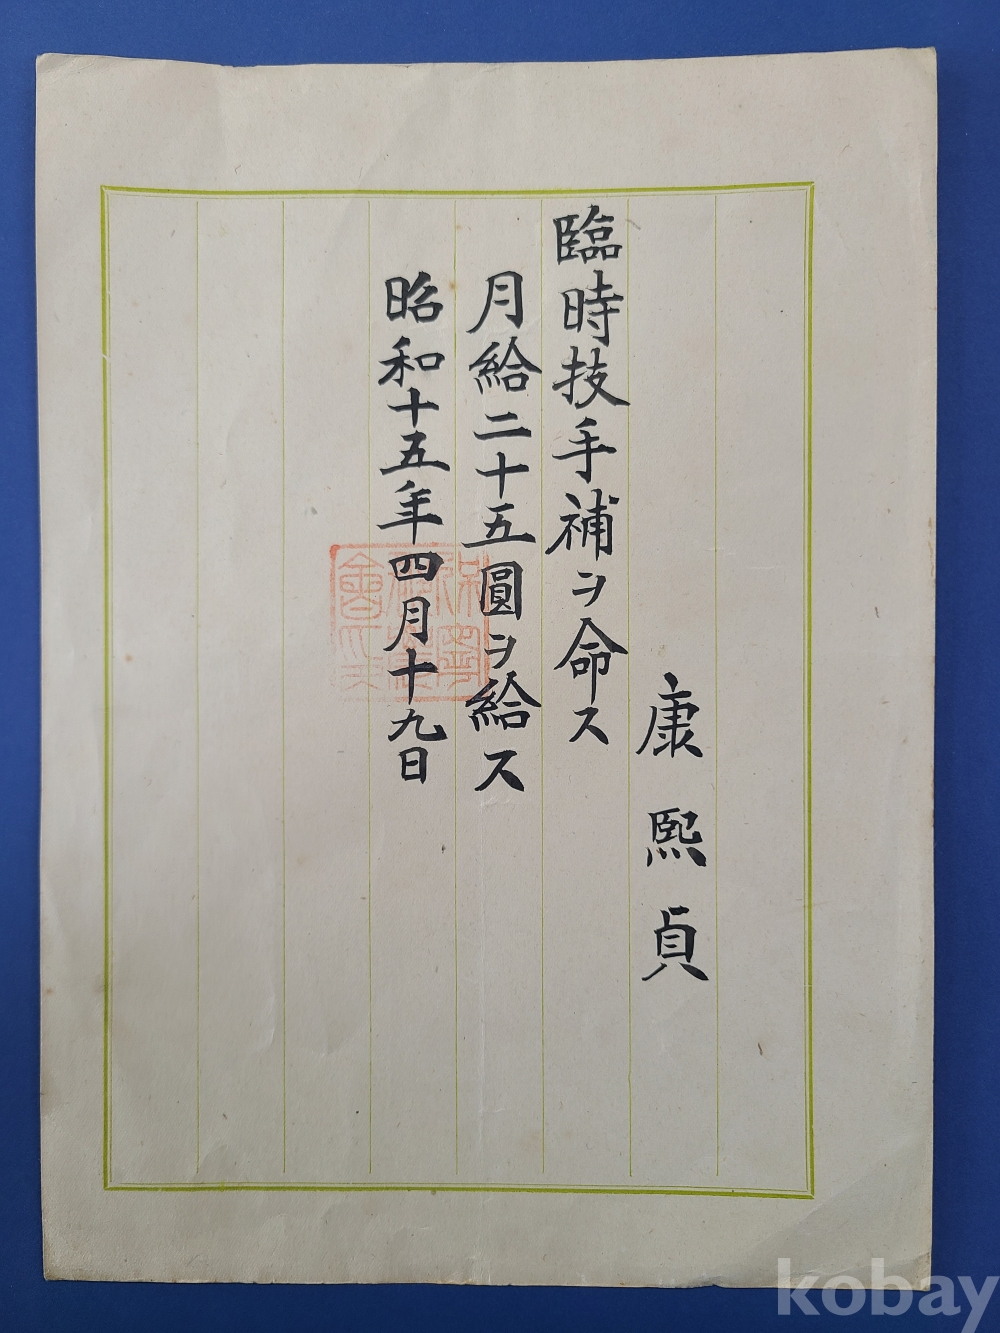 康熙貞
臨時技手補ヲ命ス
月給二十五圓ヲ給ス
昭和十五年四月十九日
kobay